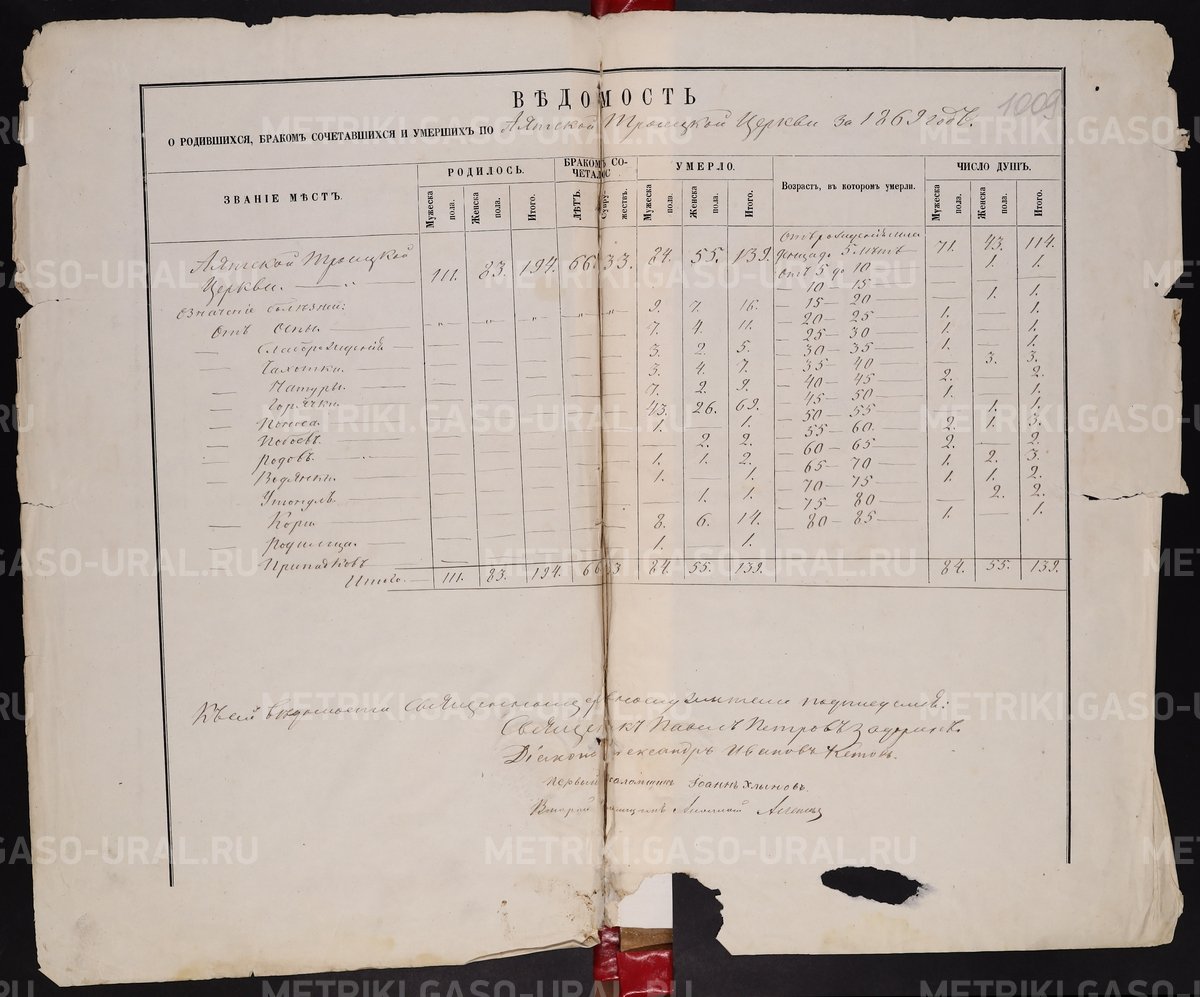 1009
ВѢДОМОСТЬ
О РОДИВШИХСЯ, БРАКОМЪ СОЧЕТАВШИХСЯ И УМЕРШИХЪ ПО Аятской Троицкой Церкви за 1869 годъ.
ЗВАНІЕ МѢСТЪ. РОДИЛОСЬ. БРАКОМЪ СО-ЧЕТАЛОС УМЕРЛО. Возрастъ, въ которомъ умерли. ЧИСЛО ДУШЪ.
Мужеска пола. Женска пола. Итого. ЛѢТЪ. Супру-жествъ. Мужеска пола. Женска пола. Итого. Мужеска пола. Женска пола. Итого.
Аятской Троицкой Церкви. 111. 83. 194. 66. 33. 84. 55. 139. до 5 лѣтъ 71. 43. 114.
отъ 5 до 10 — 1. 1.
Означеніе болѣзней: 10 — 15
Отъ Оспы. 9. 7. 16. 15 — 20 — 1. 1.
7. 4. 11. 20 — 25 1. — 1.
Чахотки. 3. 2. 5. 25 — 30 1. — 1.
Натуры. 3. 4. 7. 30 — 35 — 3. 3.
Горячки. 7. 2. 9. 35 — 40 2. — 2.
Поноса. 43. 26. 69. 40 — 45 1. — 1.
Побоевъ. 1. — 1. 45 — 50 — 1. 1.
Родовъ. — 2. 2. 50 — 55 2. 1. 3.
Водянки. 1. 1. 2. 55 — 60. 2. — 2.
Утонулъ. 1. — 1. 60 — 65 1. 2. 3.
Кори. — 1. 1. 65 — 70 1. 1. 2.
Родимца. 8. 6. 14. 70 — 75 — 2. 2.
Припадковъ 1. — 1. 75 — 80
80 — 85 1. — 1.
Итого. 111. 83. 194. 66 33 84. 55. 139. 84. 55. 139.
Къ сей вѣдомости
Священникъ Павелъ Петровъ
Діаконъ Александръ Ивановъ Кетовъ.
Первый Псаломщикъ Іоаннъ Хлыновъ.
Второй
METRIKI.GASO-URAL.RU